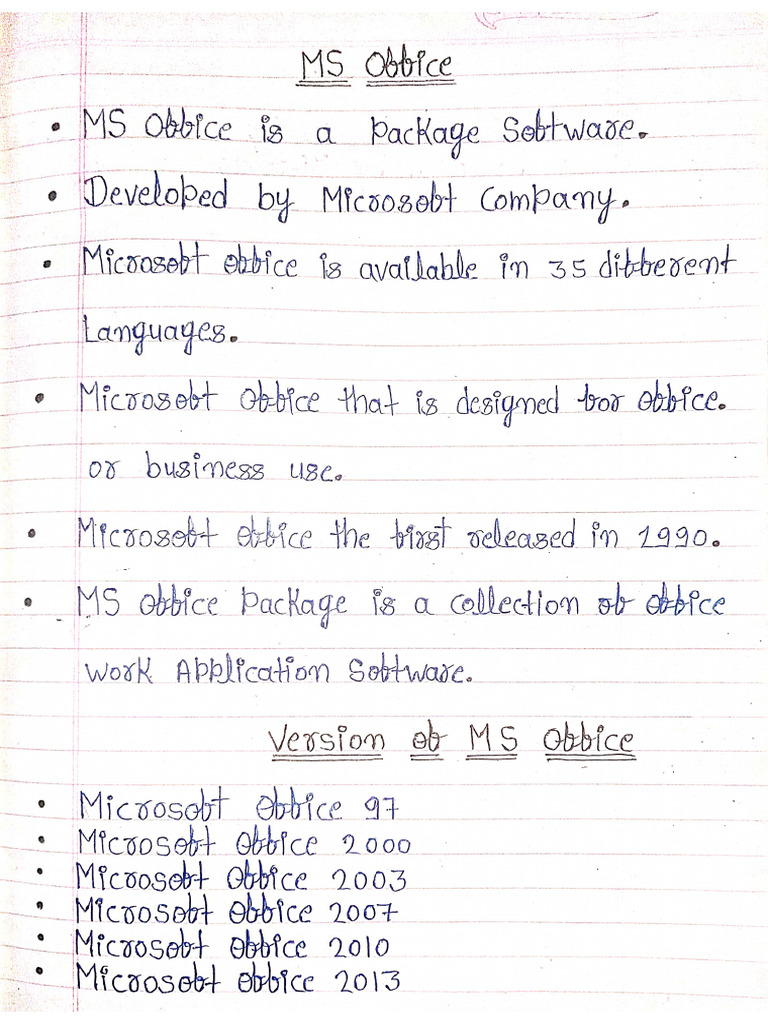 MS Office
• MS Office is a Package Software.
• Developed by Microsoft Company.
• Microsoft office is available in 35 different
Languages.
• Microsoft Office that is designed for office.
or business use.
• Microsoft office the first released in 1990.
• MS Office Package is a collection of office
work Application Software.
Version of MS Office
• Microsoft Office 97
• Microsoft Office 2000
• Microsoft Office 2003
• Microsoft Office 2007
• Microsoft Office 2010
• Microsoft Office 2013